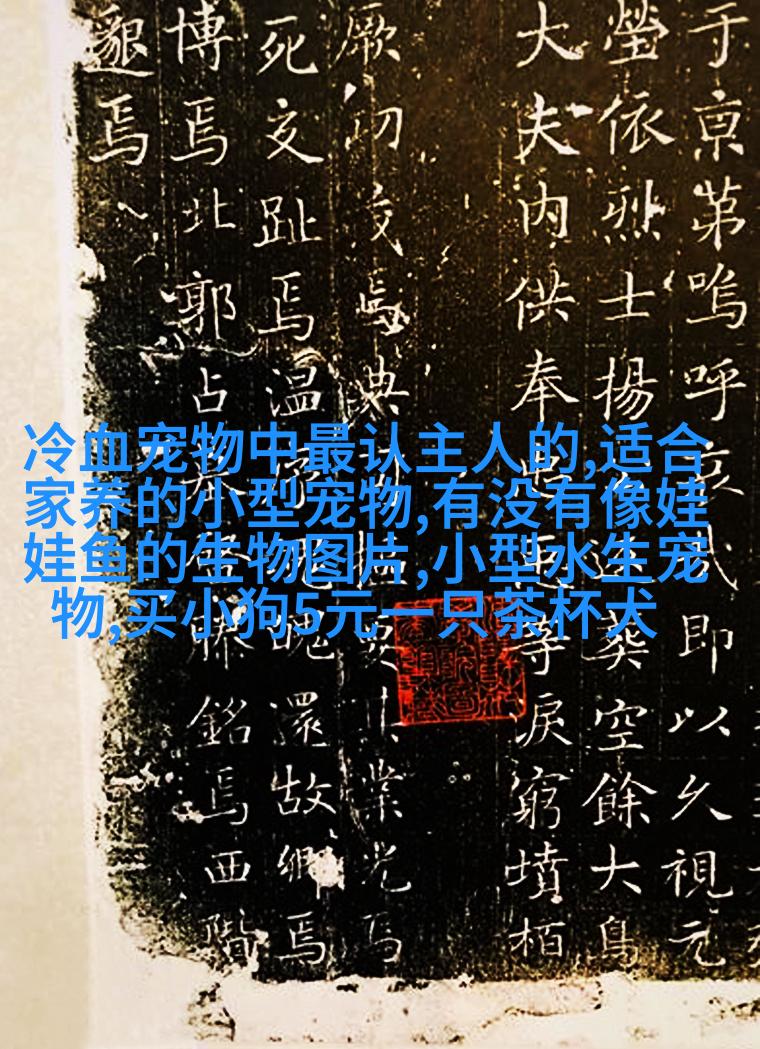 冷血宠物中最认主人的,适合
家养的小型宠物,有没有像娃
娃鱼的生物图片,小型水生宠
物,买小狗5元一只茶杯犬
于京第嗚呼哀哉即以久視元
塋依烈士揚葬空餘大鳥
大夫内供奉等淚窮墳栢
厥功茂焉典業光焉
死交趾焉温魂魄還故鄉焉
博焉北郭占銘焉西階
邈焉